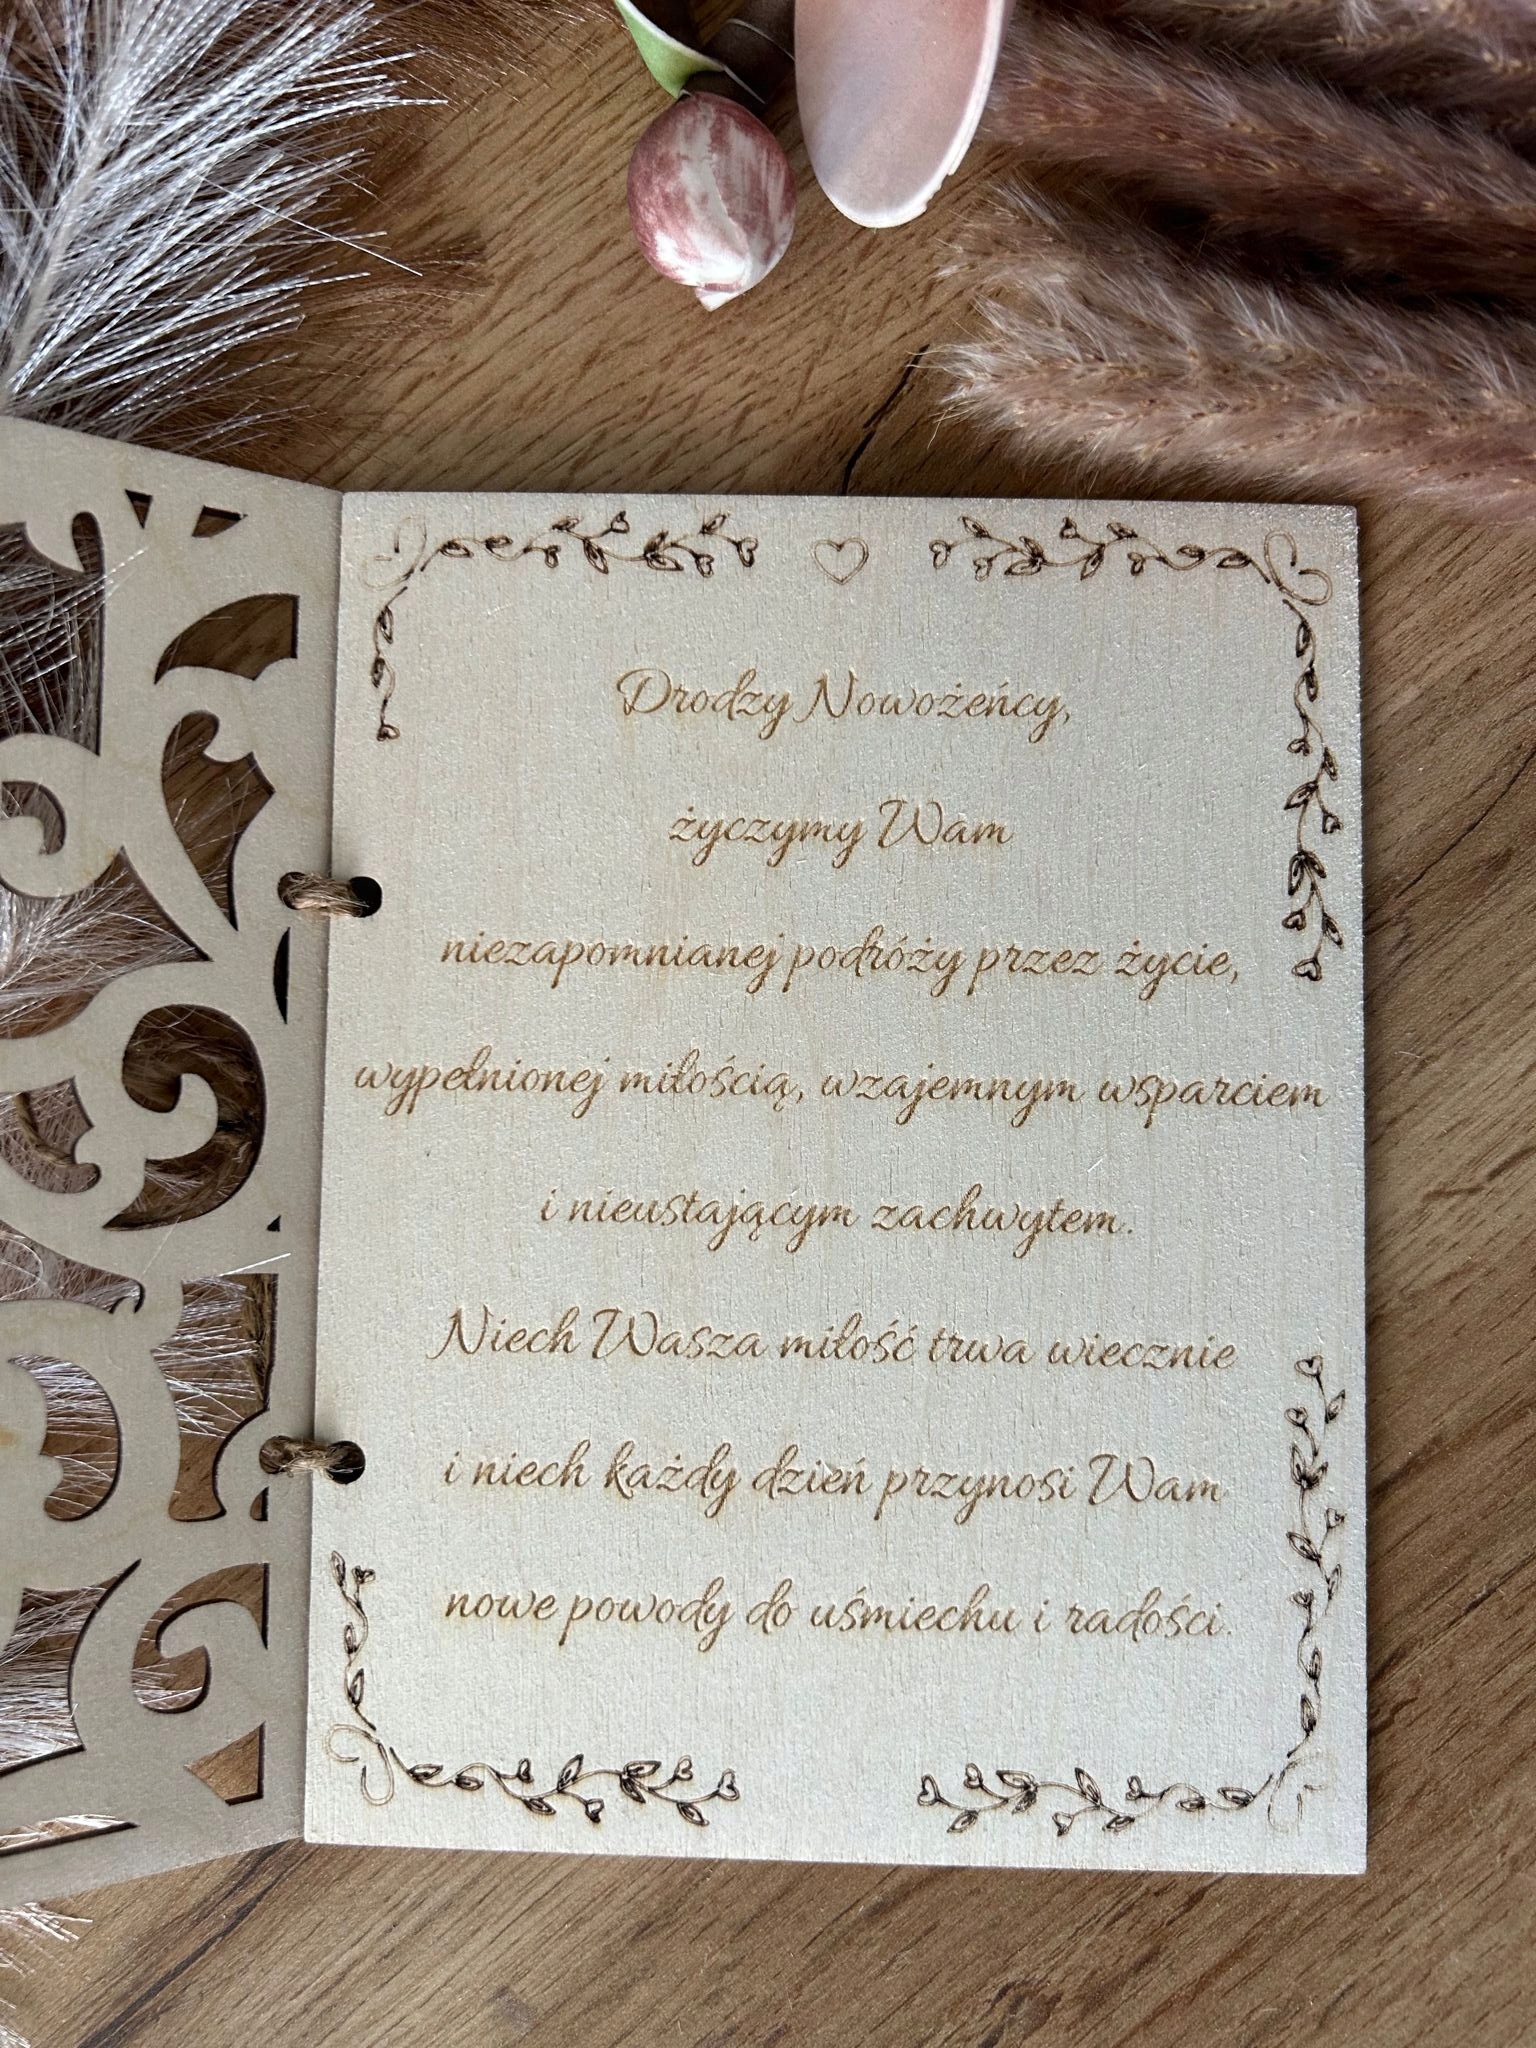 Drodzy Nowożeńcy,
życzymy Wam
niezapomnianej podróży przez życie,
wypełnionej miłością, wzajemnym wsparciem
i nieustającym zachwytem.
Niech Wasza miłość trwa wiecznie
i niech każdy dzień przynosi Wam
nowe powody do uśmiechu i radości.